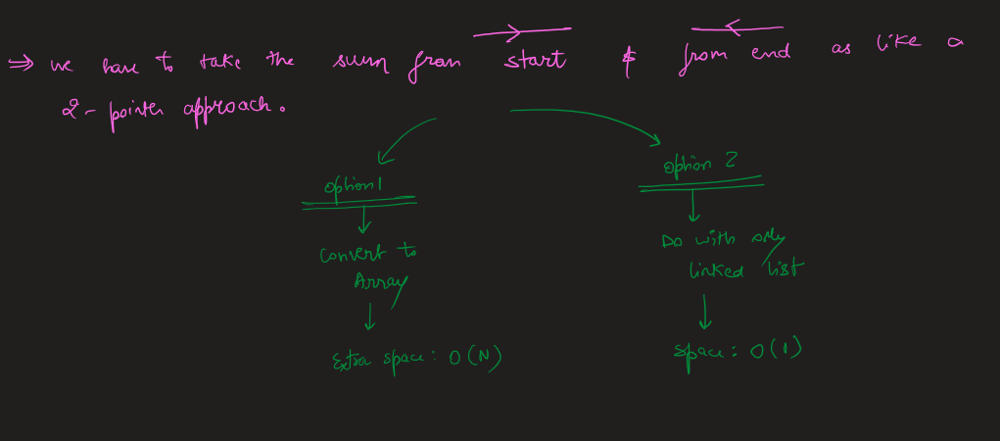 ⇒ we have to take the sum from start & from end as like a
2-pointer approach.
option 1
Convert to
Array
Extra space: O(N)
option 2
Do with only
linked list
space: O(1)